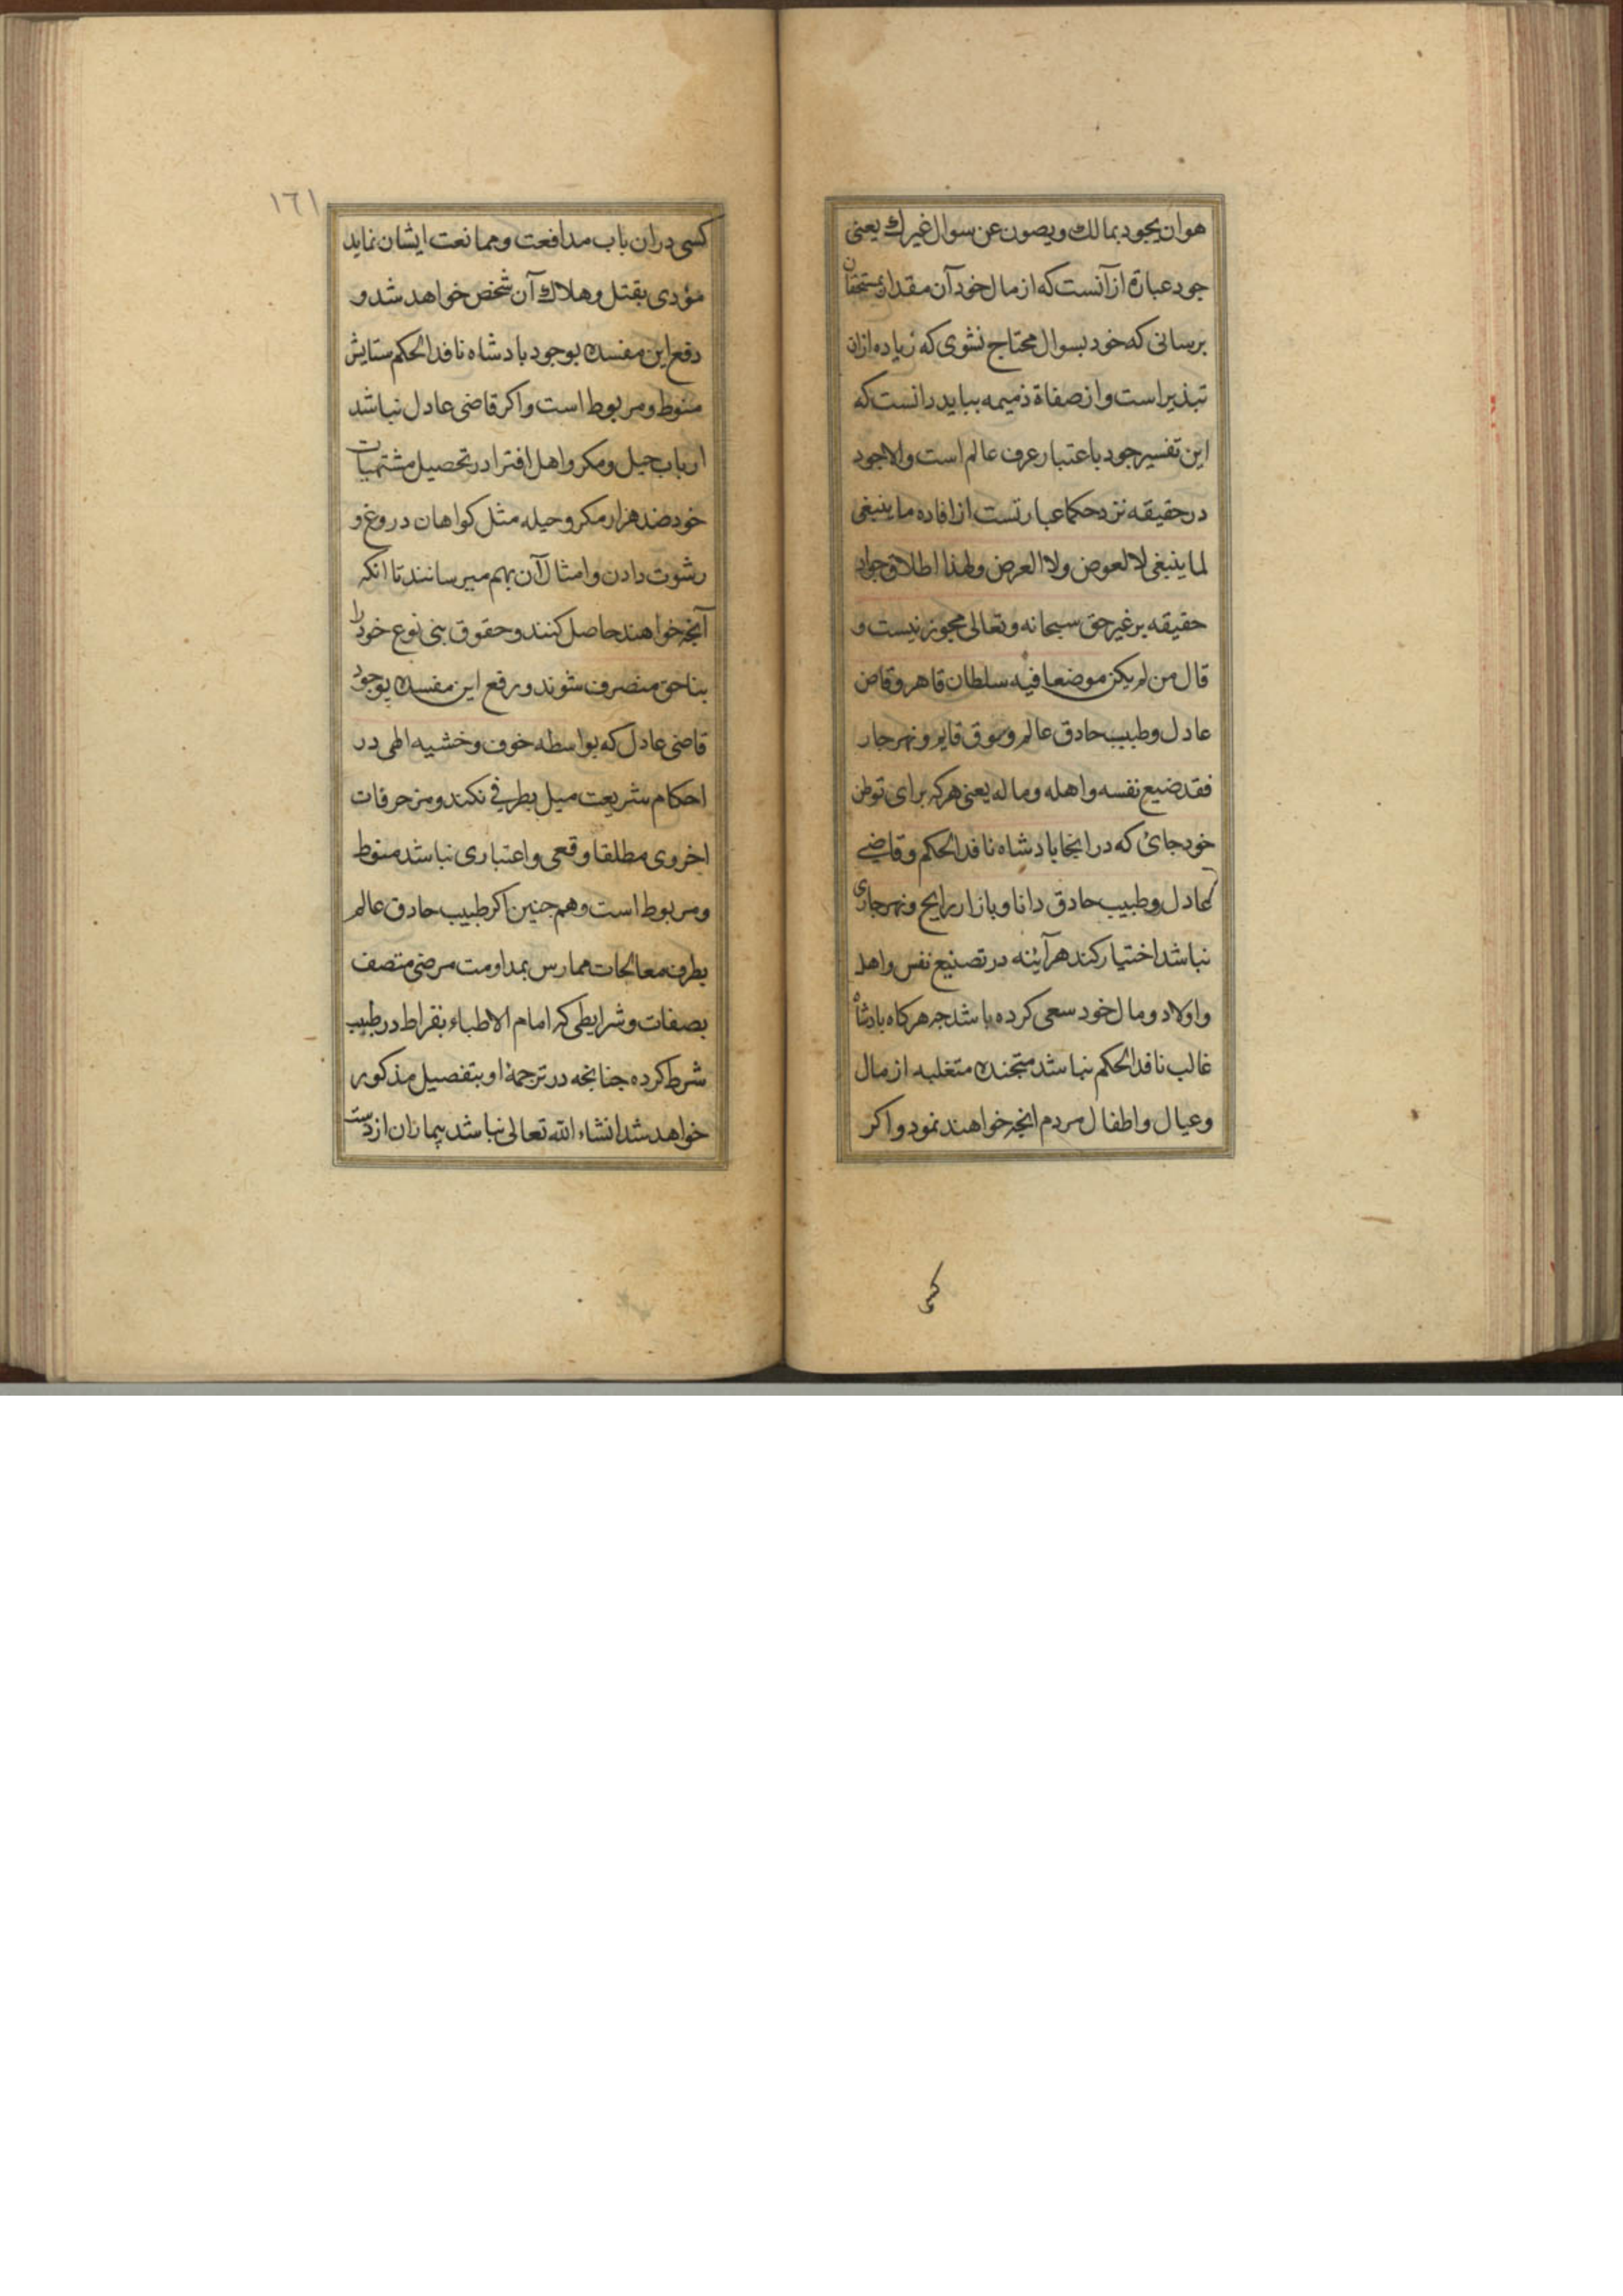 هو ان یجود بمالك ویصون عن سوال غیرك یعنی
جود عبارة از آنست که از مال خود آن مقدار بمستحقان
برسانی که خود بسوال محتاج نشوی که زیاده ازان
تبذیر است و از صفاة ذمیمه بباید دانست که
این تفسیر جود باعتبار عرف عالم است و الا جود
در حقیقه نزد حکما عبارتست از افاده ما ینبغی
لما ینبغی لا لعوض ولا لغرض ولهذا اطلاق جواد
حقیقه بر غیر حق سبحانه وتعالی مجوز نیست و
قال من لم یکن موضعا فیه سلطان قاهر وقاض
عادل وطبیب حادق عالم وسوق قایم ونهر جار
فقد ضیع نفسه واهله وماله یعنی هر که برای توطن
خود جائی که در انجا بادشاه نافد الحکم وقاضی
عادل وطبیب حادق دانا وبازار رایج ونهر جاری
نباشد اختیار کند هر آینه در تضییع نفس واهل
واولاد ومال خود سعی کرده باشد جه هر کاه بادشاه
غالب نافد الحکم نباشد متجنده متغلبه از مال
وعیال واطفال مردم انجه خواهند نمود واکر
کسی
١٦١
کسی دران باب مدافعت وممانعت ایشان نماید
مؤدی بقتل وهلاك آن شخص خواهد شد و
دفع این مفسده بوجود بادشاه نافد الحکم ستایش
منوط ومربوط است واکر قاضی عادل نباشد
ارباب حیل ومکر واهل افترا در تحصیل مشتهیات
خود صد هزار مکر وحیله مثل کواهان دروغ و
رشوت دادن وامثال آن بهم میرسانند تا انکه
آنجه خواهند حاصل کنند وحقوق بنی نوع خود را
بناحق متصرف شوند ورفع این مفسده بوجود
قاضی عادل که بواسطه خوف وخشیه الهی در
احکام شریعت میل بطرفی نکند ومزخرفات
اخروی مطلقا وقعی واعتباری نباشد منوط
ومربوط است وهم جنین اکر طبیب حادق عالم
بطرف معالجات ممارس بمداومت مرضی متصف
بصفات وشرایطی که امام الاطباء بقراط در طبیب
شرط کرده جنانجه در ترجمهٔ او بتفصیل مذکور
خواهد شد انشاء الله تعالی نباشد بیماران از دست